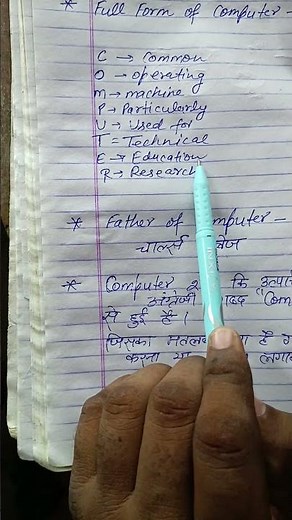 * Full Form of Computer -
C → Common
O → operating
M → machine
P → Particularly
U → Used for
T = Technical
E → Education
R → Research
* Father of Computer -
चार्ल्स
* Computer कि
अंग्रेजी शब्द "Com
से हुई है ।
जिसका मतलब है
करना या